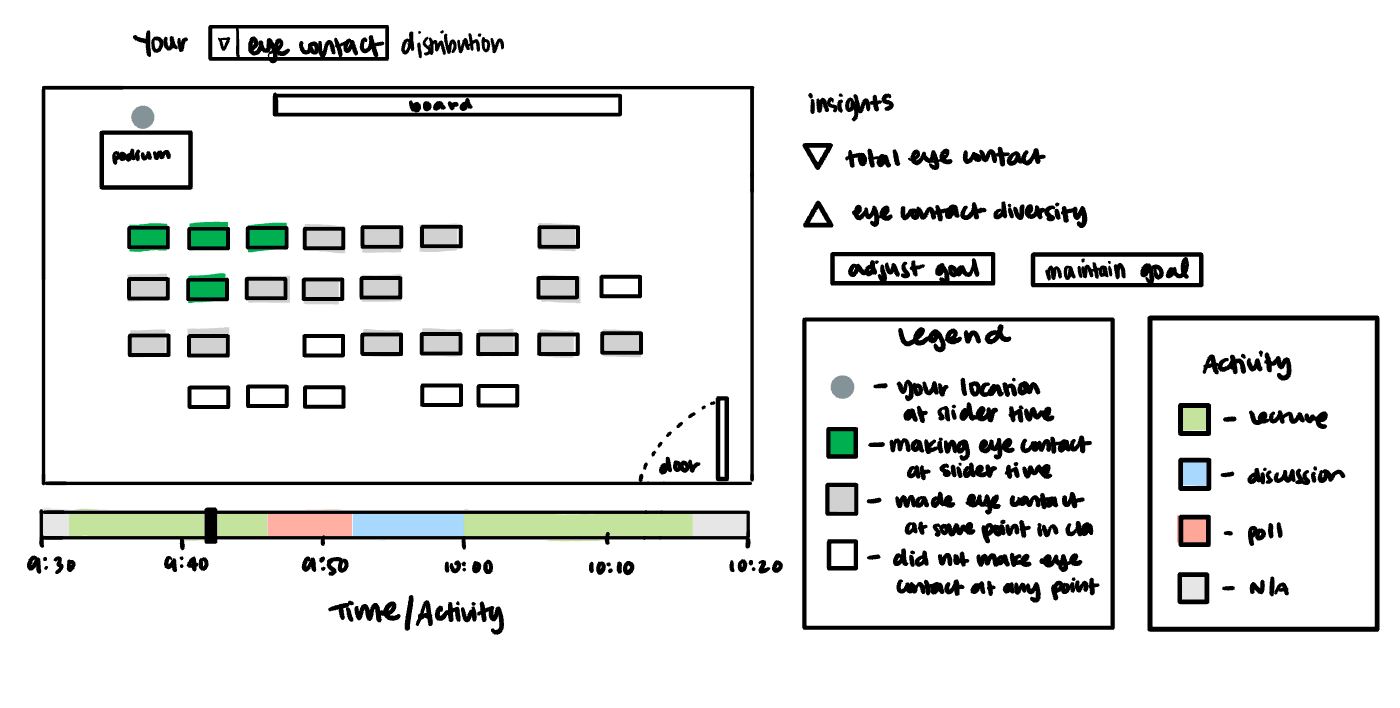 Your ▽ eye contact distribution
board
podium
door
9:30 9:40 9:50 10:00 10:10 10:20
Time/Activity
insights
▽ total eye contact
△ eye contact diversity
adjust goal
maintain goal
Legend
- your location
at slider time
- making eye contact
at slider time
- made eye contact
at some point in cla
- did not make eye
contact at any point
Activity
- lecture
- discussion
- poll
- N/A